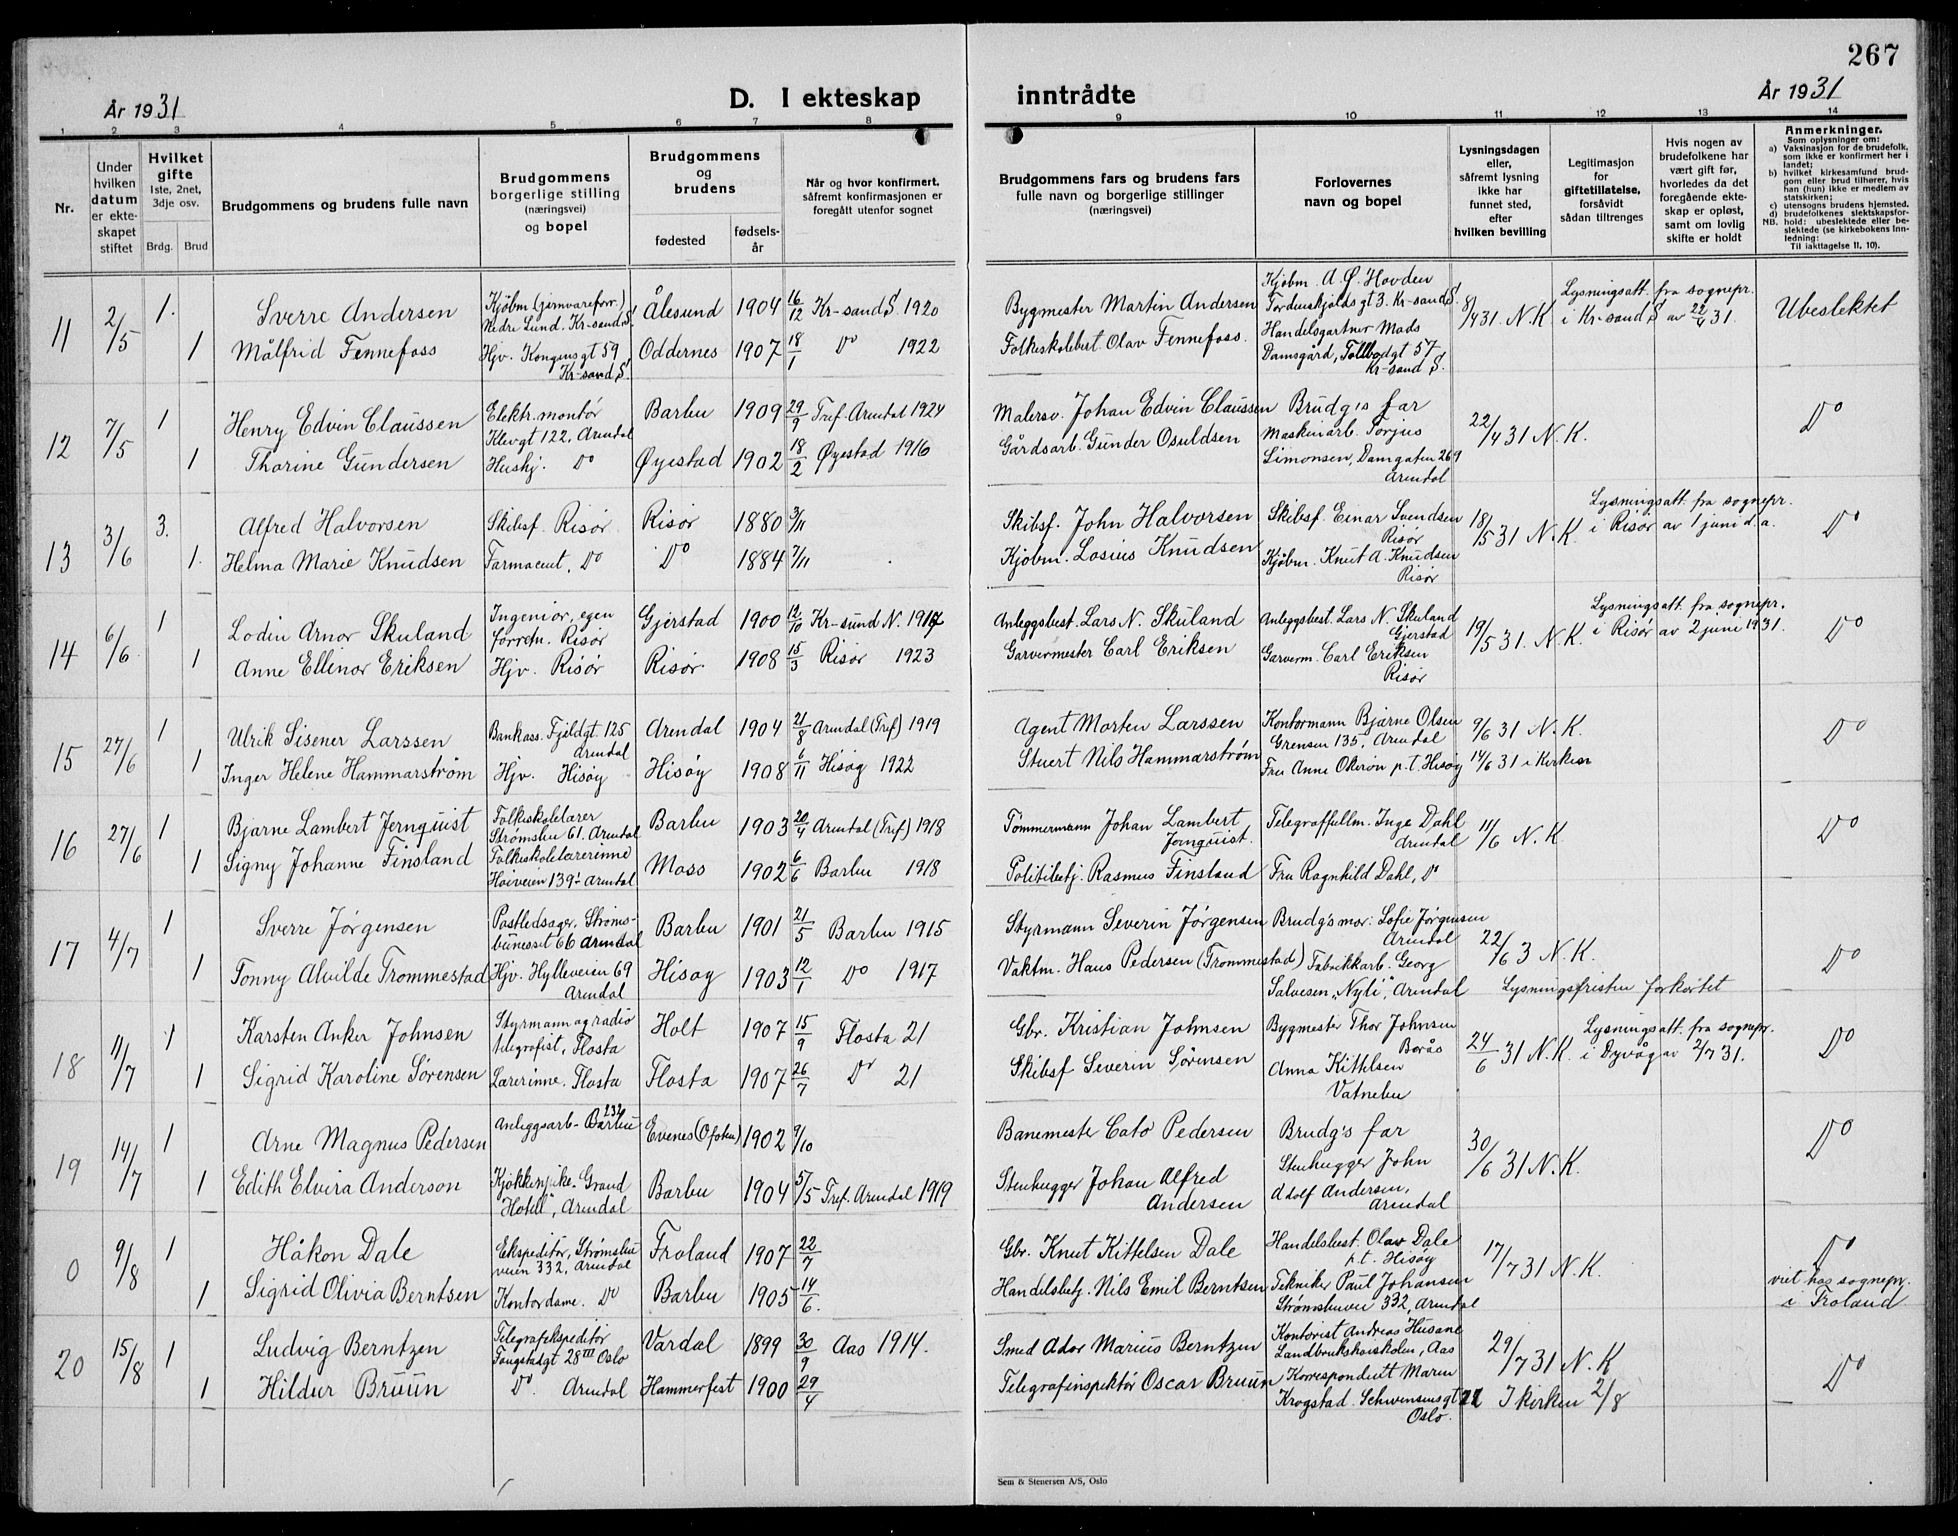 267
År 1931
D. I ekteskap inntrådte
År 1931
1 2 3 4 5 6 7 8 9 10 11 12 13 14
Nr.
Under hvilken datum er ekteskapet stiftet
Hvilket gifte
1ste, 2net, 3dje osv.
Brdg. Brud
Brudgommens og brudens fulle navn
Brudgommens borgerlige stilling (næringsvei) og bopel
Brudgommens og brudens
fødested
fødselsår
Når og hvor konfirmert, såfremt konfirmasjonen er foregått utenfor sognet
Brudgommens fars og brudens fars fulle navn og borgerlige stillinger (næringsvei)
Forlovernes navn og bopel
Lysningsdagen eller, såfremt lysning ikke har funnet sted, efter hvilken bevilling
Legitimasjon for giftetillatelse, forsåvidt sådan tiltrenges
Hvis nogen av brudefolkene har vært gift før, hvorledes da det foregående ekteskap er opløst, samt om lovlig skifte er holdt
Anmerkninger.
Som oplysninger om:
a) Vaksinasjon for de brudefolk, som ikke er konfirmert her i landet;
b) hvilket kirkesamfund brudgom eller brud tilhører, hvis han (hun) ikke er medlem av statskirken;
c) utensogns brudens hjemsted.
d) brudefolkenes slektskapsforhold: ubeslektede eller beslektede (se kirkebokens Innledning:
NB.
Til iakttagelse II, 10).
11 2/5 1. Sverre Andersen Kjøbm (jernvareforr.) Nedre Lund, Kr-sand S. Ålesund 1904 16/12 Kr-sand S. 1920 Bygmester Martin Andersen Kjøbm. A. Ø. Hovden Tordenskjoldsgt 3. Kr-sand S. 8/4 31. N.K. Lysningsatt. fra sognepr. i Kr-sand S av 22/4 31. Ubeslektet
1 Målfrid Fennefoss Hjv. Kongensgt 59 Kr-sand S. Oddernes 1907 18/1 Do 1922 Folkeskolebest. Olav Fennefoss. Handelsgartner Mads Damsgård, Tollbodgt 57 Kr-sand S.
12 7/5 1 Henry Edvin Claussen Elektr. montør Klevgt 122, Arendal Barbu 1909 29/9 Tref. Arendal 1924 Malersv. Johan Edvin Claussen Brudg's far 22/4 31 N.K. Do
1 Tharine Gundersen Hushj. Do Øyestad 1902 18/2 Øyestad 1916 Gårdsarb. Gunder Osuldsen Maskinarb. Torjus Simonsen, Damgaten 269 Arendal
13 3/6 3. Alfred Halvorsen Skibsf. Risør. Risør 1880 3/11 Skibsf. John Halvorsen Skibsf. Einar Svendsen Risør 18/5 31 N.K. Lysningsatt. fra sognepr. i Risør av 1 juni d.a. Do
1. Helma Marie Knudsen Farmaceut, Do Do 1884 7/11 Kjøbm. Losius Knudsen Kjøbm. Knut A. Knudsen Risør
14 6/6 1 Lodin Arnor Skuland Ingeniør, egen forretn. Risør Gjerstad 1900 12/10 Kr-sund N. 1917 Anleggsbest. Lars N. Skuland Anleggsbest. Lars N. Skuland Gjerstad 19/5 31. N.K. Lysningsatt. fra sognepr. i Risør av 2 juni 1931. Do
1 Anne Ellinor Eriksen Hjv. Risør Risør. 1908 15/3 Risør 1923 Garvermester Carl Eriksen Garverm. Carl Eriksen Risør
15 27/6 1 Ulrik Sisener Larssen Bankass. Fjeldgt. 125 Arendal Arendal 1904 21/8 Arendal (Tref) 1919 Agent Morten Larssen Kontormann Bjarne Olsen Grensen 135, Arendal 9/6 31 N.K. Do
1 Inger Helene Hammarstrøm Hjv. Hisøy Hisøy 1908 6/11 Hisøy 1922 Stuert Nils Hammarstrøm Fru Anne p.t. Hisøy 14/6 31 i Kirken
16 27/6 1 Bjarne Lambert Jernquist Folkeskolelærer Strømsbu 61. Arendal Barbu 1903 20/4 Arendal (Tref) 1918 Tømmermann Johan Lambert Jernquist. Telegraffullm. Inge Dahl Arendal 11/6 N.K Do
1 Signy Johanne Finsland Folkeskolelærerinne Høiveien 139 Arendal Moss 1902 6/6 Barbu 1918 Politibetj. Rasmus Finsland Fru Ragnhild Dahl, Do
17 4/7 1 Sverre Jørgensen Postledsager, Strømsbuneset 66 Arendal Barbu 1901 21/5 Barbu 1915 Styrmann Severin Jørgensen Brudg's mor: Sofie Jørgensen Arendal 22/6 3 N.K. Do
1 Tonny Alvilde Trommestad Hjv. Hylleveien 69 Arendal Hisøy 1903 12/1 Do 1917 Vaktm. Hans Pedersen (Trommestad) Fabrikkarb. Georg Salvesen "Nyli", Arendal Lysningsfristen forkortet
18 11/7 1 Karsten Anker Johnsen Styrmann og radiotelegrafist, Flosta Holt 1907 15/9 Flosta 21 Gbr. Kristian Johnsen Bygmester Thor Johnsen Borås 24/6 31 N.K. Lysningsatt. fra sognepr. i Dypvåg av 2/7 31. Do
1 Sigrid Karoline Sørensen Lærerinne. Flosta Flosta 1907 26/7 Do 21 Skibsf Severin Sørensen Anna Kittelsen Vatnebu
19 14/7 1 Arne Magnus Pedersen Anleggsarb- Barbu 232 Evenes (Ofoten) 1902 9/10 Banemester Cato Pedersen Brudg's far 30/6 31 N.K. Do
1 Edith Elvira Anderson Kjøkkenpike. "Grand Hotell", Arendal Barbu 1904 5/5 Tref. Arendal 1919 Stenhugger Johan Alfred Andersen Stenhugger John Adolf Andersen, Arendal
0 9/8 1 Håkon Dale Ekspeditør, Strømsbuveien 332, Arendal Froland 1907 22/7 Gbr. Knut Kittelsen Dale Handelsbest. Olav Dale p.t. Hisøy 17/7 31 N.K. Do
1 Sigrid Olivia Berntsen Kontordame. Do Barbu 1905 14/6. Handelsbetj. Nils Emil Berntsen Tekniker Paul Johansen Strømsbuvei 332, Arendal viet hos sognepr. i Froland
20 15/8 1 Ludvig Berntzen Telegrafekspeditør Fougstadgt 28 III Oslo Vardal 1899 30/9 Aas 1914. Smed Ador Marius Berntzen Kontorist Andreas Husane Landbrukshøiskolen, Aas 29/7 31 N.K Do
1 Hildur Bruun Do. Arendal Hammerfest 1900 29/4 Telegrafinspektør Oscar Bruun Korrespondent Maren Krogstad. Schwensensgt Oslo. I kirken 2/8
Sem & Stenersen A/S, Oslo